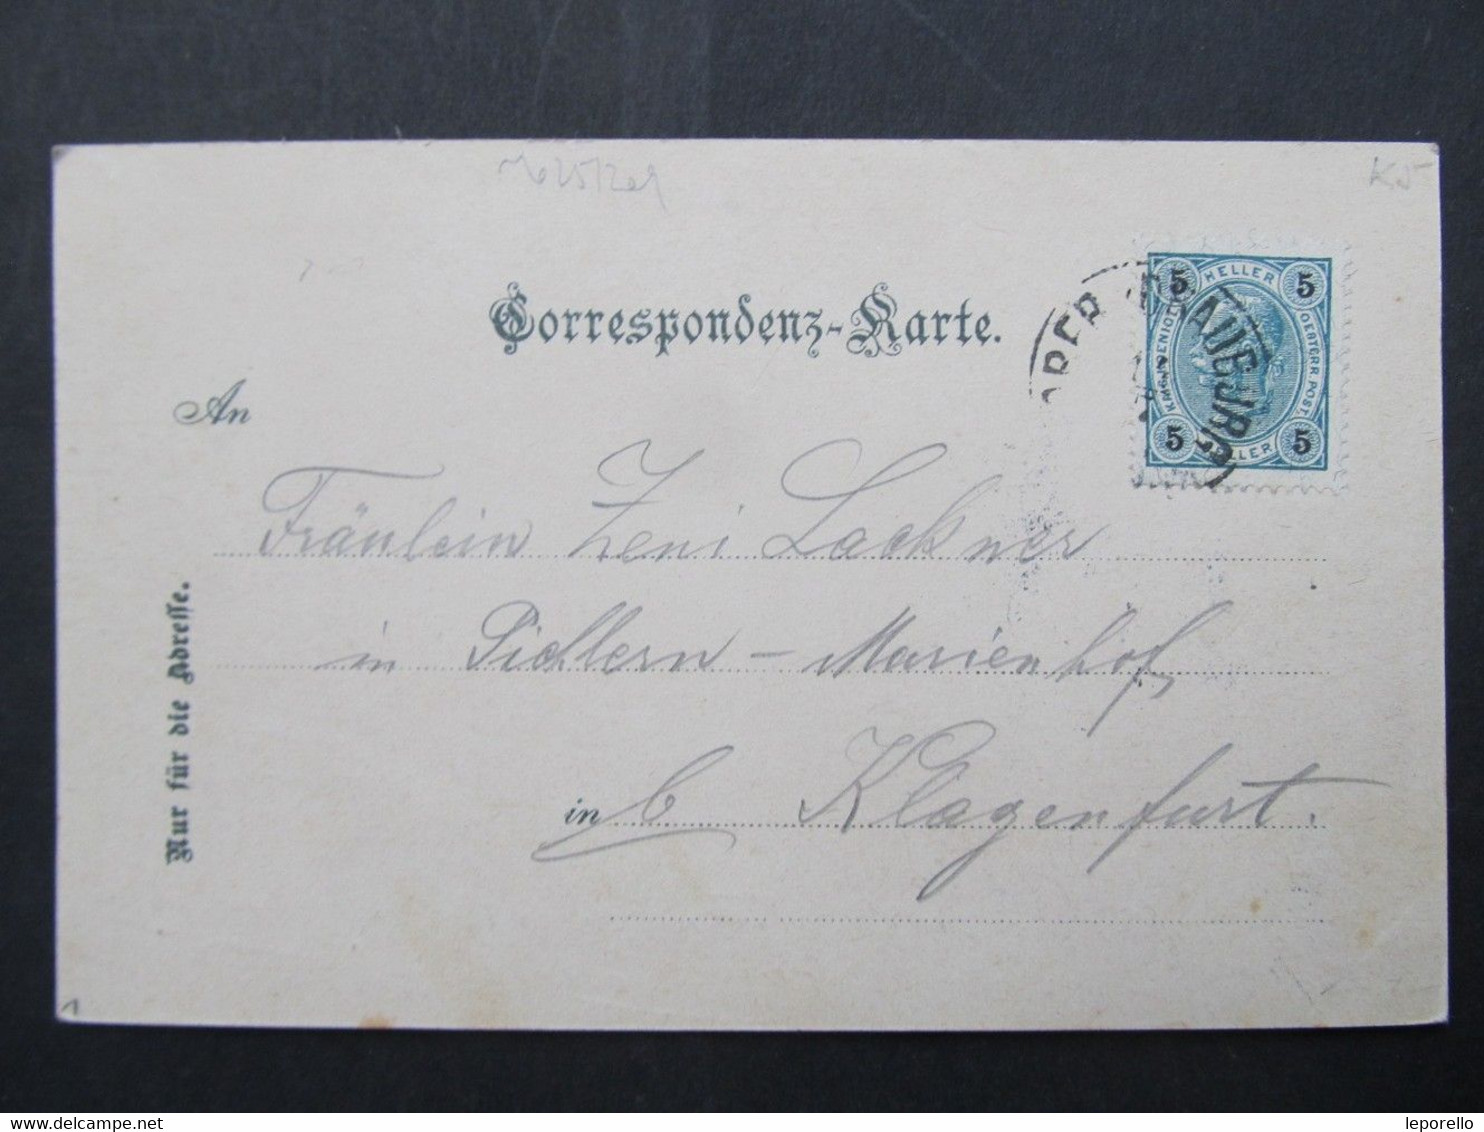 K5
Correspondenz-Karte.
5 HELLER 5
OESTERR. POST.
5 HELLER 5
OBER DRAUBURG
An
Fräulein Zeni Lackner
in Pichlern - Marienhof,
in b Klagenfurt.
Nur für die Adresse.
1
www.delcampe.net
leporello